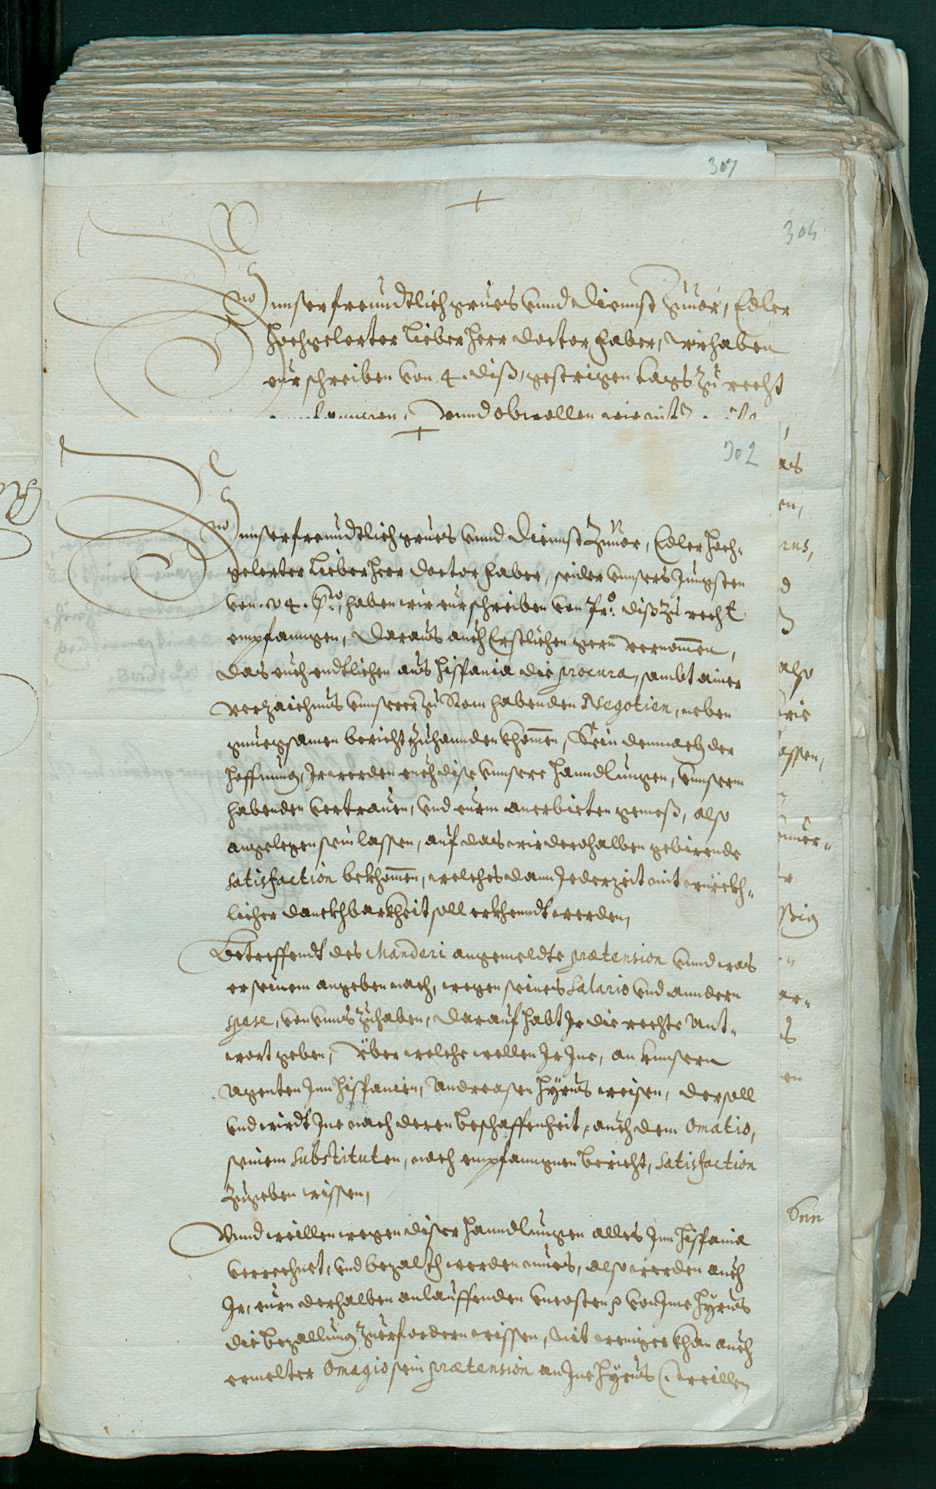 307
304
unser freundtlich grues vnnd diennst zuuor, Edler
hochgelerter lieber Herr doctor Faber, Wir haben
eur schreiben von 4. diß, gestrigen tags zu recht
vnnd obwollen wir
302
unser freundtlich grues vnnd diennst zuuor, Edler hoch-
gelerter lieber Herr doctor Faber, seider vnnsers Jungsten
haben wir eur schreiben von diß zu recht
empfanngen, daraus auch Erstlichen gern vernommen,
das euch endtlichen aus Hispania die procura, sambt ainer
verzaichnus vnnserer zu Rom habenden Negotien, neben
gnuegsamen bericht zuhannden khommen, Sein demnach der
hoffnung, Ir werden euch dise vnnsere hanndlungen, vnnserm
habenden vertrauen, vnd eurm anerbieten gemeß, also
angelegen sein lassen, auf das wir derohalben gebirende
satisfaction bekhommen, welches dann Jederzeit mit
licher danckhbarkheit soll erkhenndt werden,
Betreffendt des Manderi angemeldte prætension vnnd was
er seinem angeben nach, wegen seines Salario vnd anndern
spese, von vnns zuhaben, darauf habt Ir die rechte Ant-
wort geben, Über welche wellen Ir Ine, an vnnsern
Agenten Inn Hispanien, Andreasen Hyrus weisen, der soll
vnd wirdt Ine nach deren beschaffenheit, auch dem Omatio,
seinem Substituten, nach empfanngnen bericht, Satisfaction
zugeben wissen,
Vnnd weillen wegen diser hanndlungen alles Inn Hispania
verrechnet, vnd bezalt werden mues, also werden auch
Ir, eurn derhalben anlauffenden vncosten von Ime Hyrus
die bezallung zuerfordern wissen, Nit weniger khan auch
ermelter Omagio sein prætension an Ine Hyrus weillen